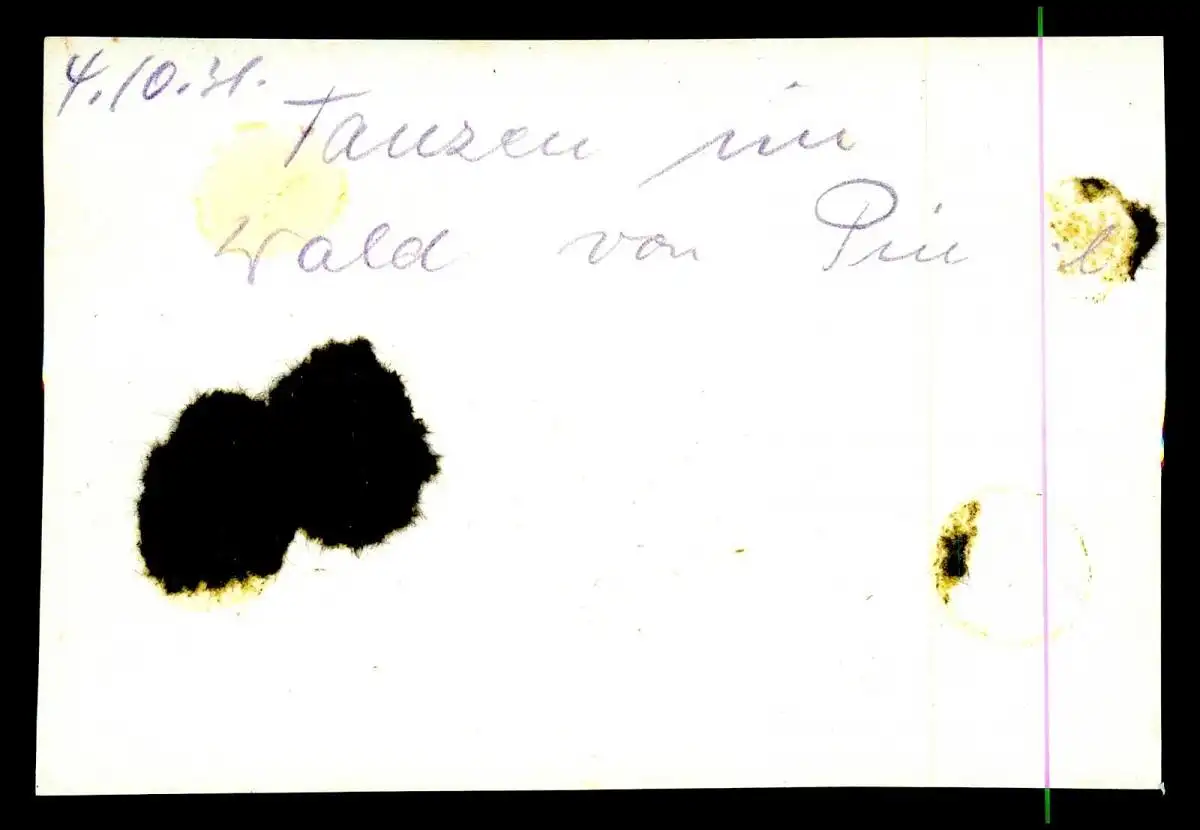 4.10.31.
Tanzen im
Wald von